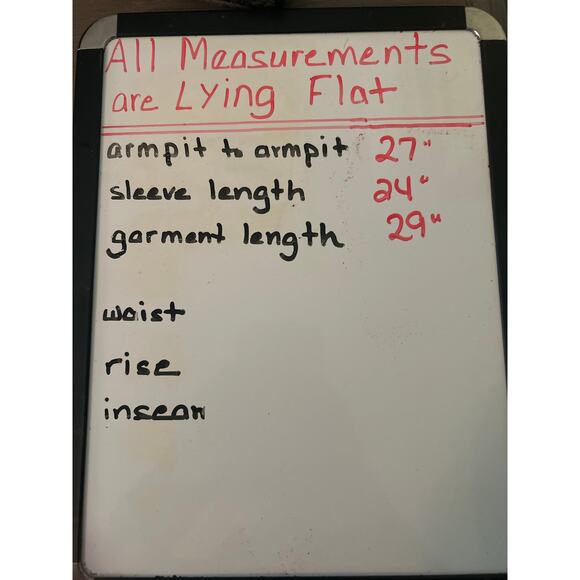 All Measurements
are Lying Flat
armpit to armpit 27"
sleeve length 24"
garment length 29"
waist
rise
inseam